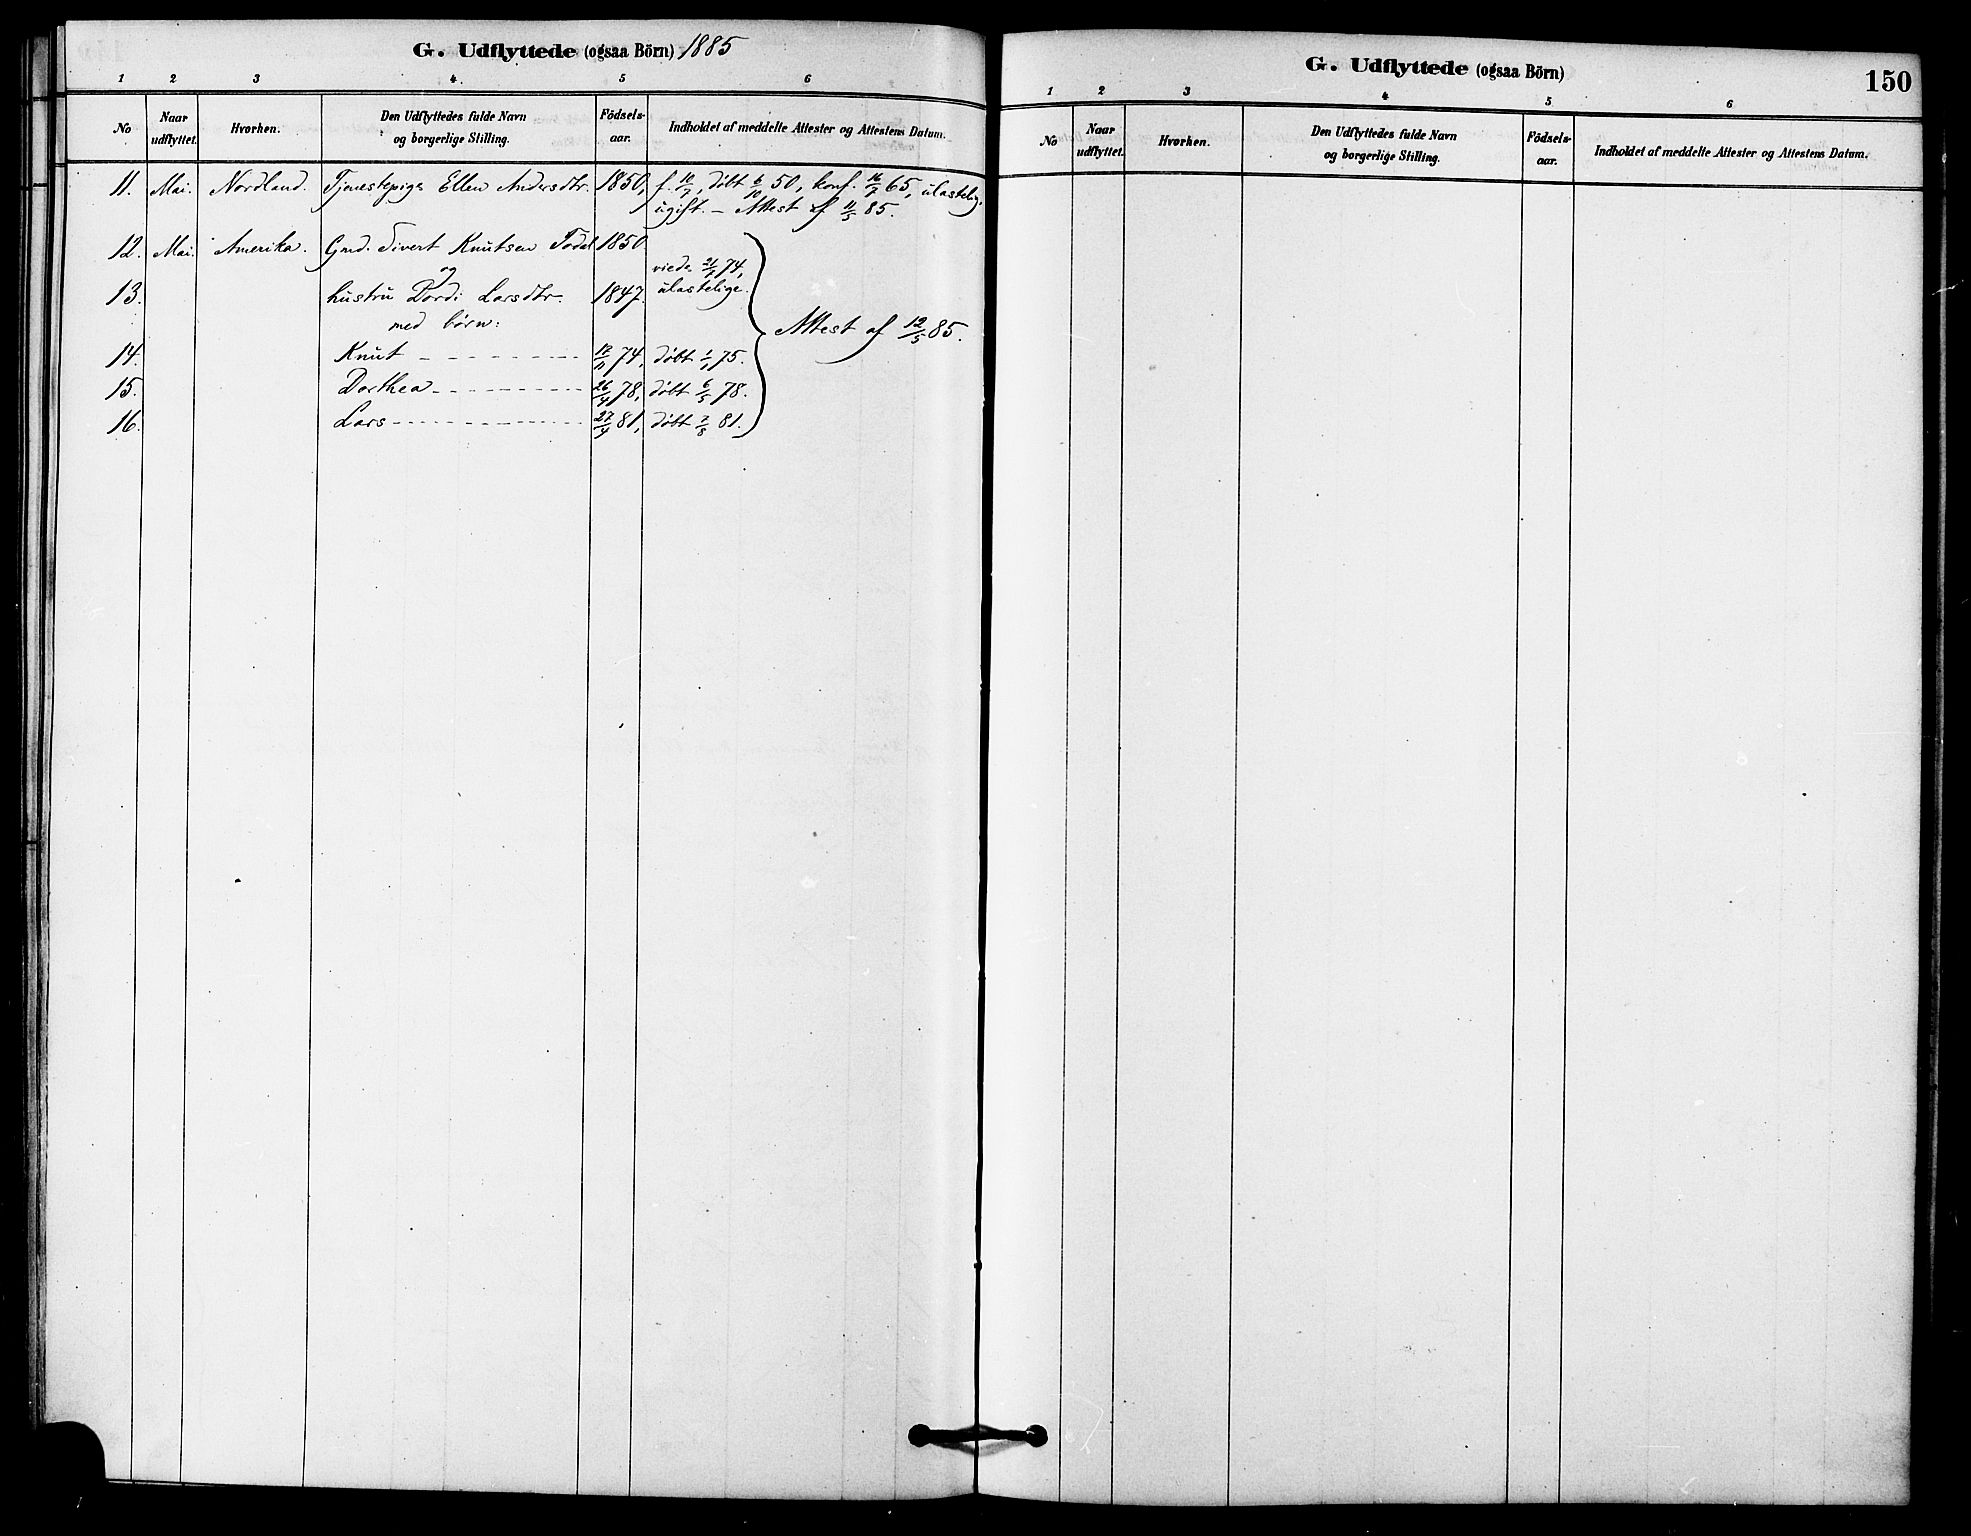 G. Udflyttede (ogsaa Börn) 1885
1 2 3 4. 5 6
No Naar udflyttet. Hvorhen. Den Udflyttedes fulde Navn og borgerlige Stilling. Födsels-aar. Indholdet af meddelte Attester og Attestens Datum.
11. Mai. Nordland. Tjenestepige Ellen Andersdtr. 1850, f. 10/7, döbt 6/10 50, konf. 16/7 65, ulastelig,
ugift. – Attest af 11/5 85.
12. Mai. Amerika. Gmd. Sivert Knutsen Todal 1850
og viede 74,
13. hustru Dordi Larsdtr 1847. ulastelige.
med börn: Attest af 12/5 85.
14. Knut 74, döbt 1/1 75.
15. Dorthea 26/4 78, döbt 6/5 78.
16. Lars 27/4 81, döbt 7/8 81.
G. Udflyttede (ogsaa Börn)
150
1 2 3 4 5 6
No Naar udflyttet. Hvorhen. Den Udflyttedes fulde Navn og borgerlige Stilling. Födsels-aar. Indholdet af meddelte Attester og Attestens Datum.